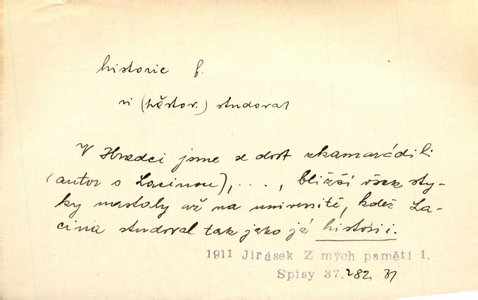 historie f.
vi (dějstv.) studoval
V Hradci jsme se dost skamarádili
(autor s Lacinou), ..., bližší však sty-
ky nastaly až na universitě, kdež La-
cina studoval tak jako já historii.
1911 Jirásek Z mých pamětí 1.
Spisy 37. 282